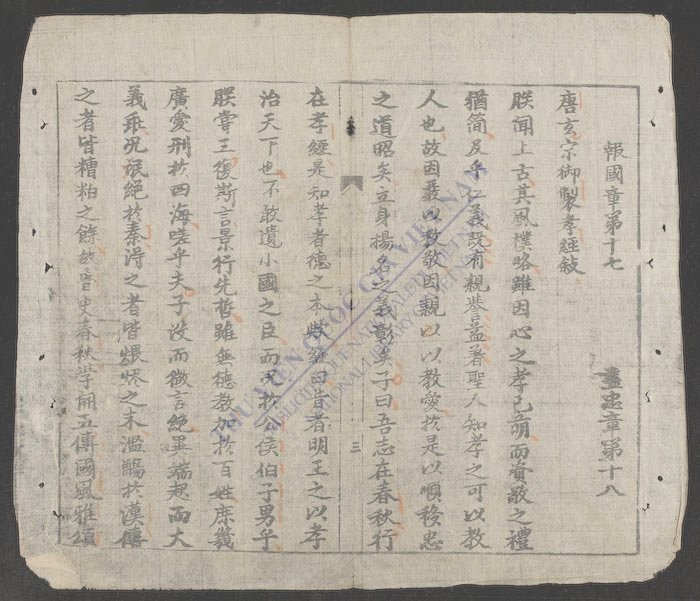 報國章第十七　盡忠章第十八
唐玄宗御製孝經敍
朕聞上古其風樸略雖因心之孝已萌而資敬之禮
猶簡及乎仁義既有親譽益著聖人知孝之可以教
人也故因嚴以教敬因親以以教愛於是以順移忠
之道昭矣立身揚名之義彰矣子曰吾志在春秋行
三
在孝經是知孝者德之本歟經曰昔者明王之以孝
治天下也不敢遺小國之臣而況於公侯伯子男乎
朕嘗三復斯言景行先哲雖無德教加於百姓庶幾
廣愛刑於四海嗟乎夫子沒而微言絕異端起而大
義乖況泯絕於秦得之者皆煨燼之末濫觴於漢傳
之者皆糟粕之餘故魯史春秋學開五傳國風雅頌
THƯ VIỆN QUỐC GIA VIỆT NAM
BIBLIOTHÈQUE NATIONALE DU VIETNAM
NATIONAL LIBRARY OF VIETNAM